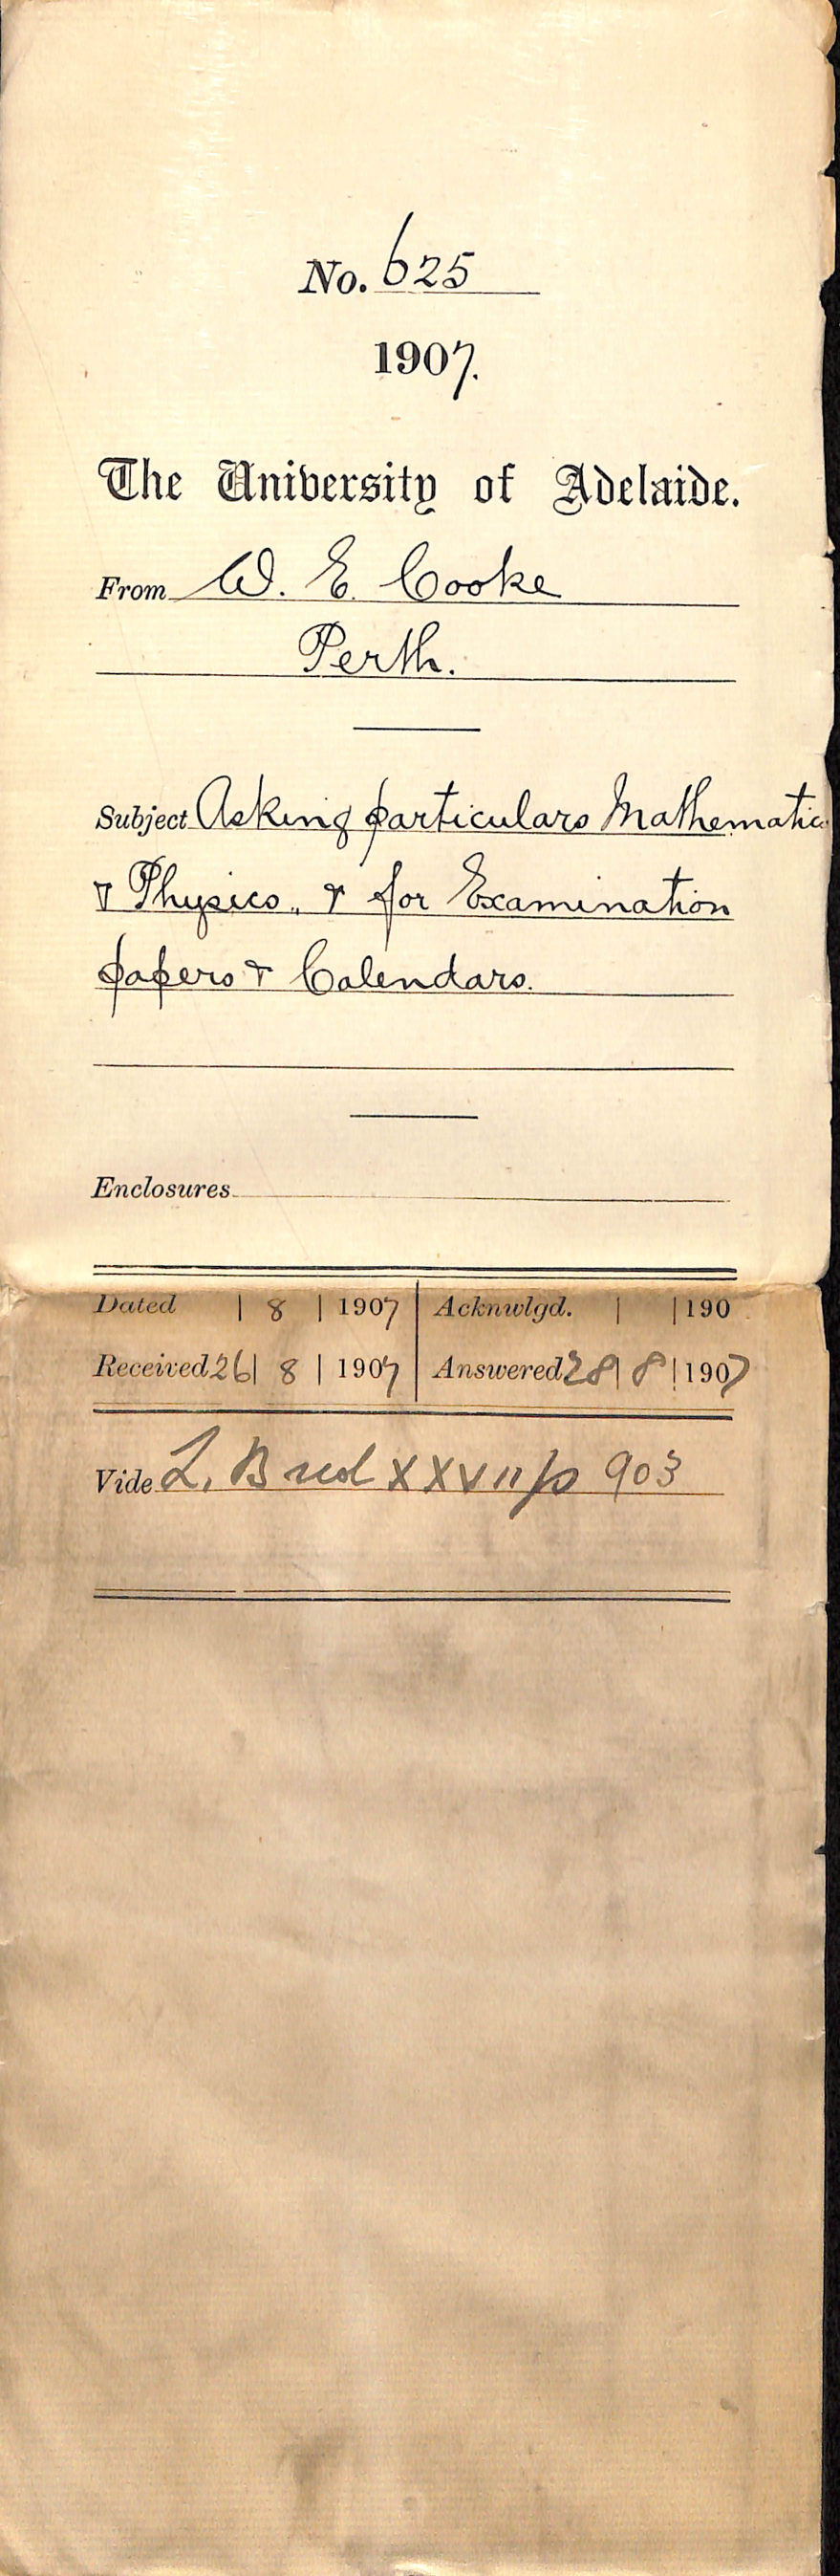 No. 625
1907.
The University of Adelaide.
From W. E. Cooke
Perth.
Subject Asking particulars Mathematic
& Physics, & for Examination
papers & Calendars.
Enclosures
Dated | 8 | 1907 | Acknwlgd. | | 190
Received 26 | 8 | 1907 | Answered 28 | 8 | 1907
Vide L. B XXVII p 903